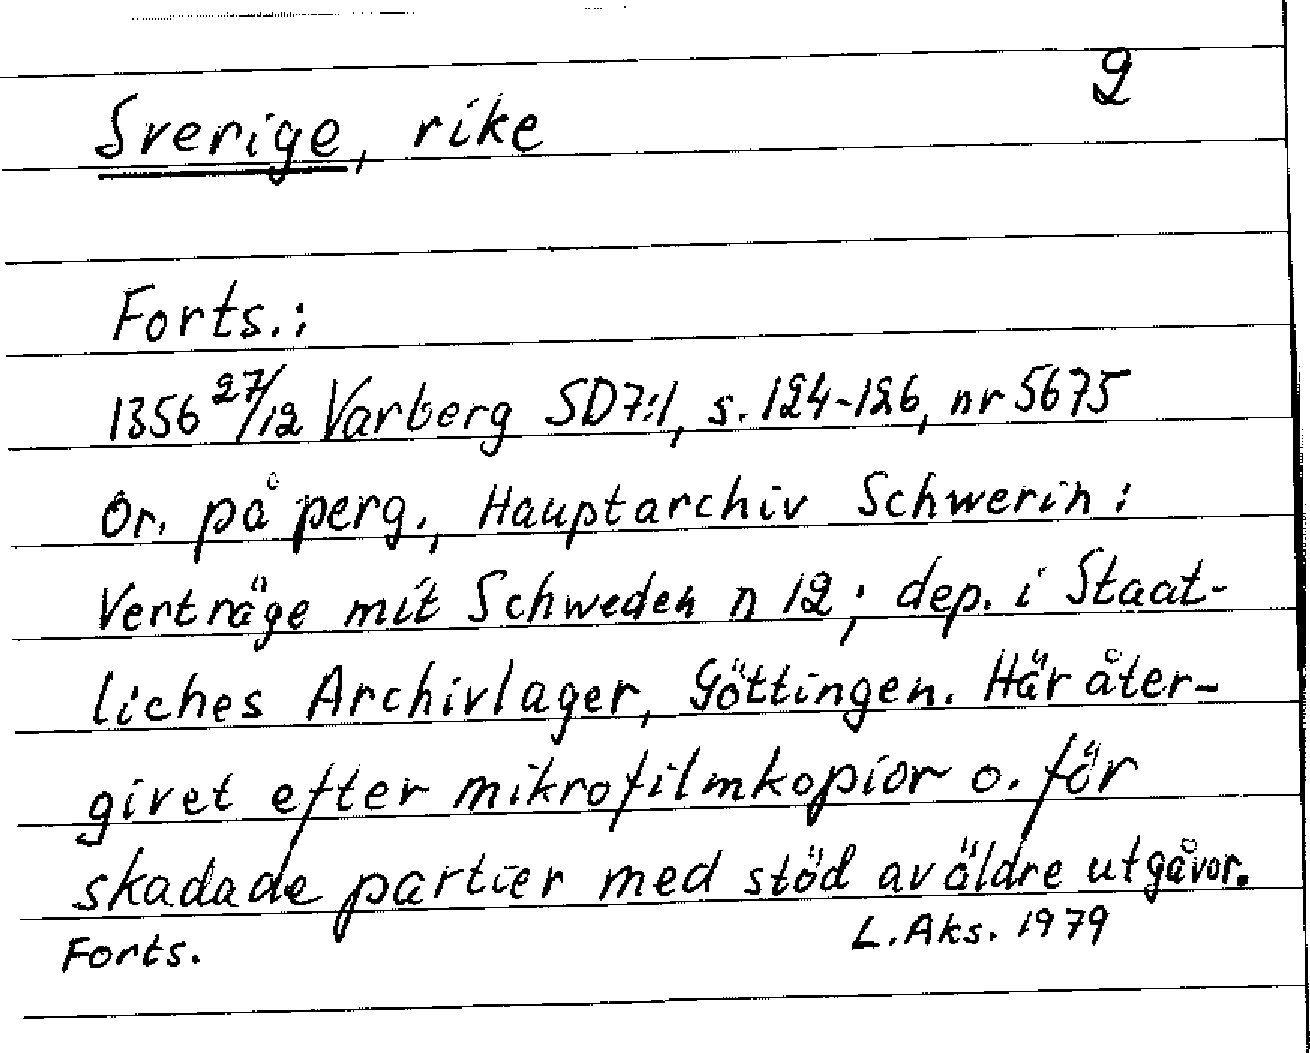 2
Sverige, rike
Forts.:
1356 27/12 Varberg SD7:1, s. 124-126, nr 5675
Or. på perg., Hauptarchiv Schwerin:
Verträge mit Schweden n 12; dep. i Staat-
liches Archivlager, Göttingen. Här åter-
givet efter mikrofilmkopior o. för
skadade partier med stöd av äldre utgåvor.
Forts. L. Aks. 1979